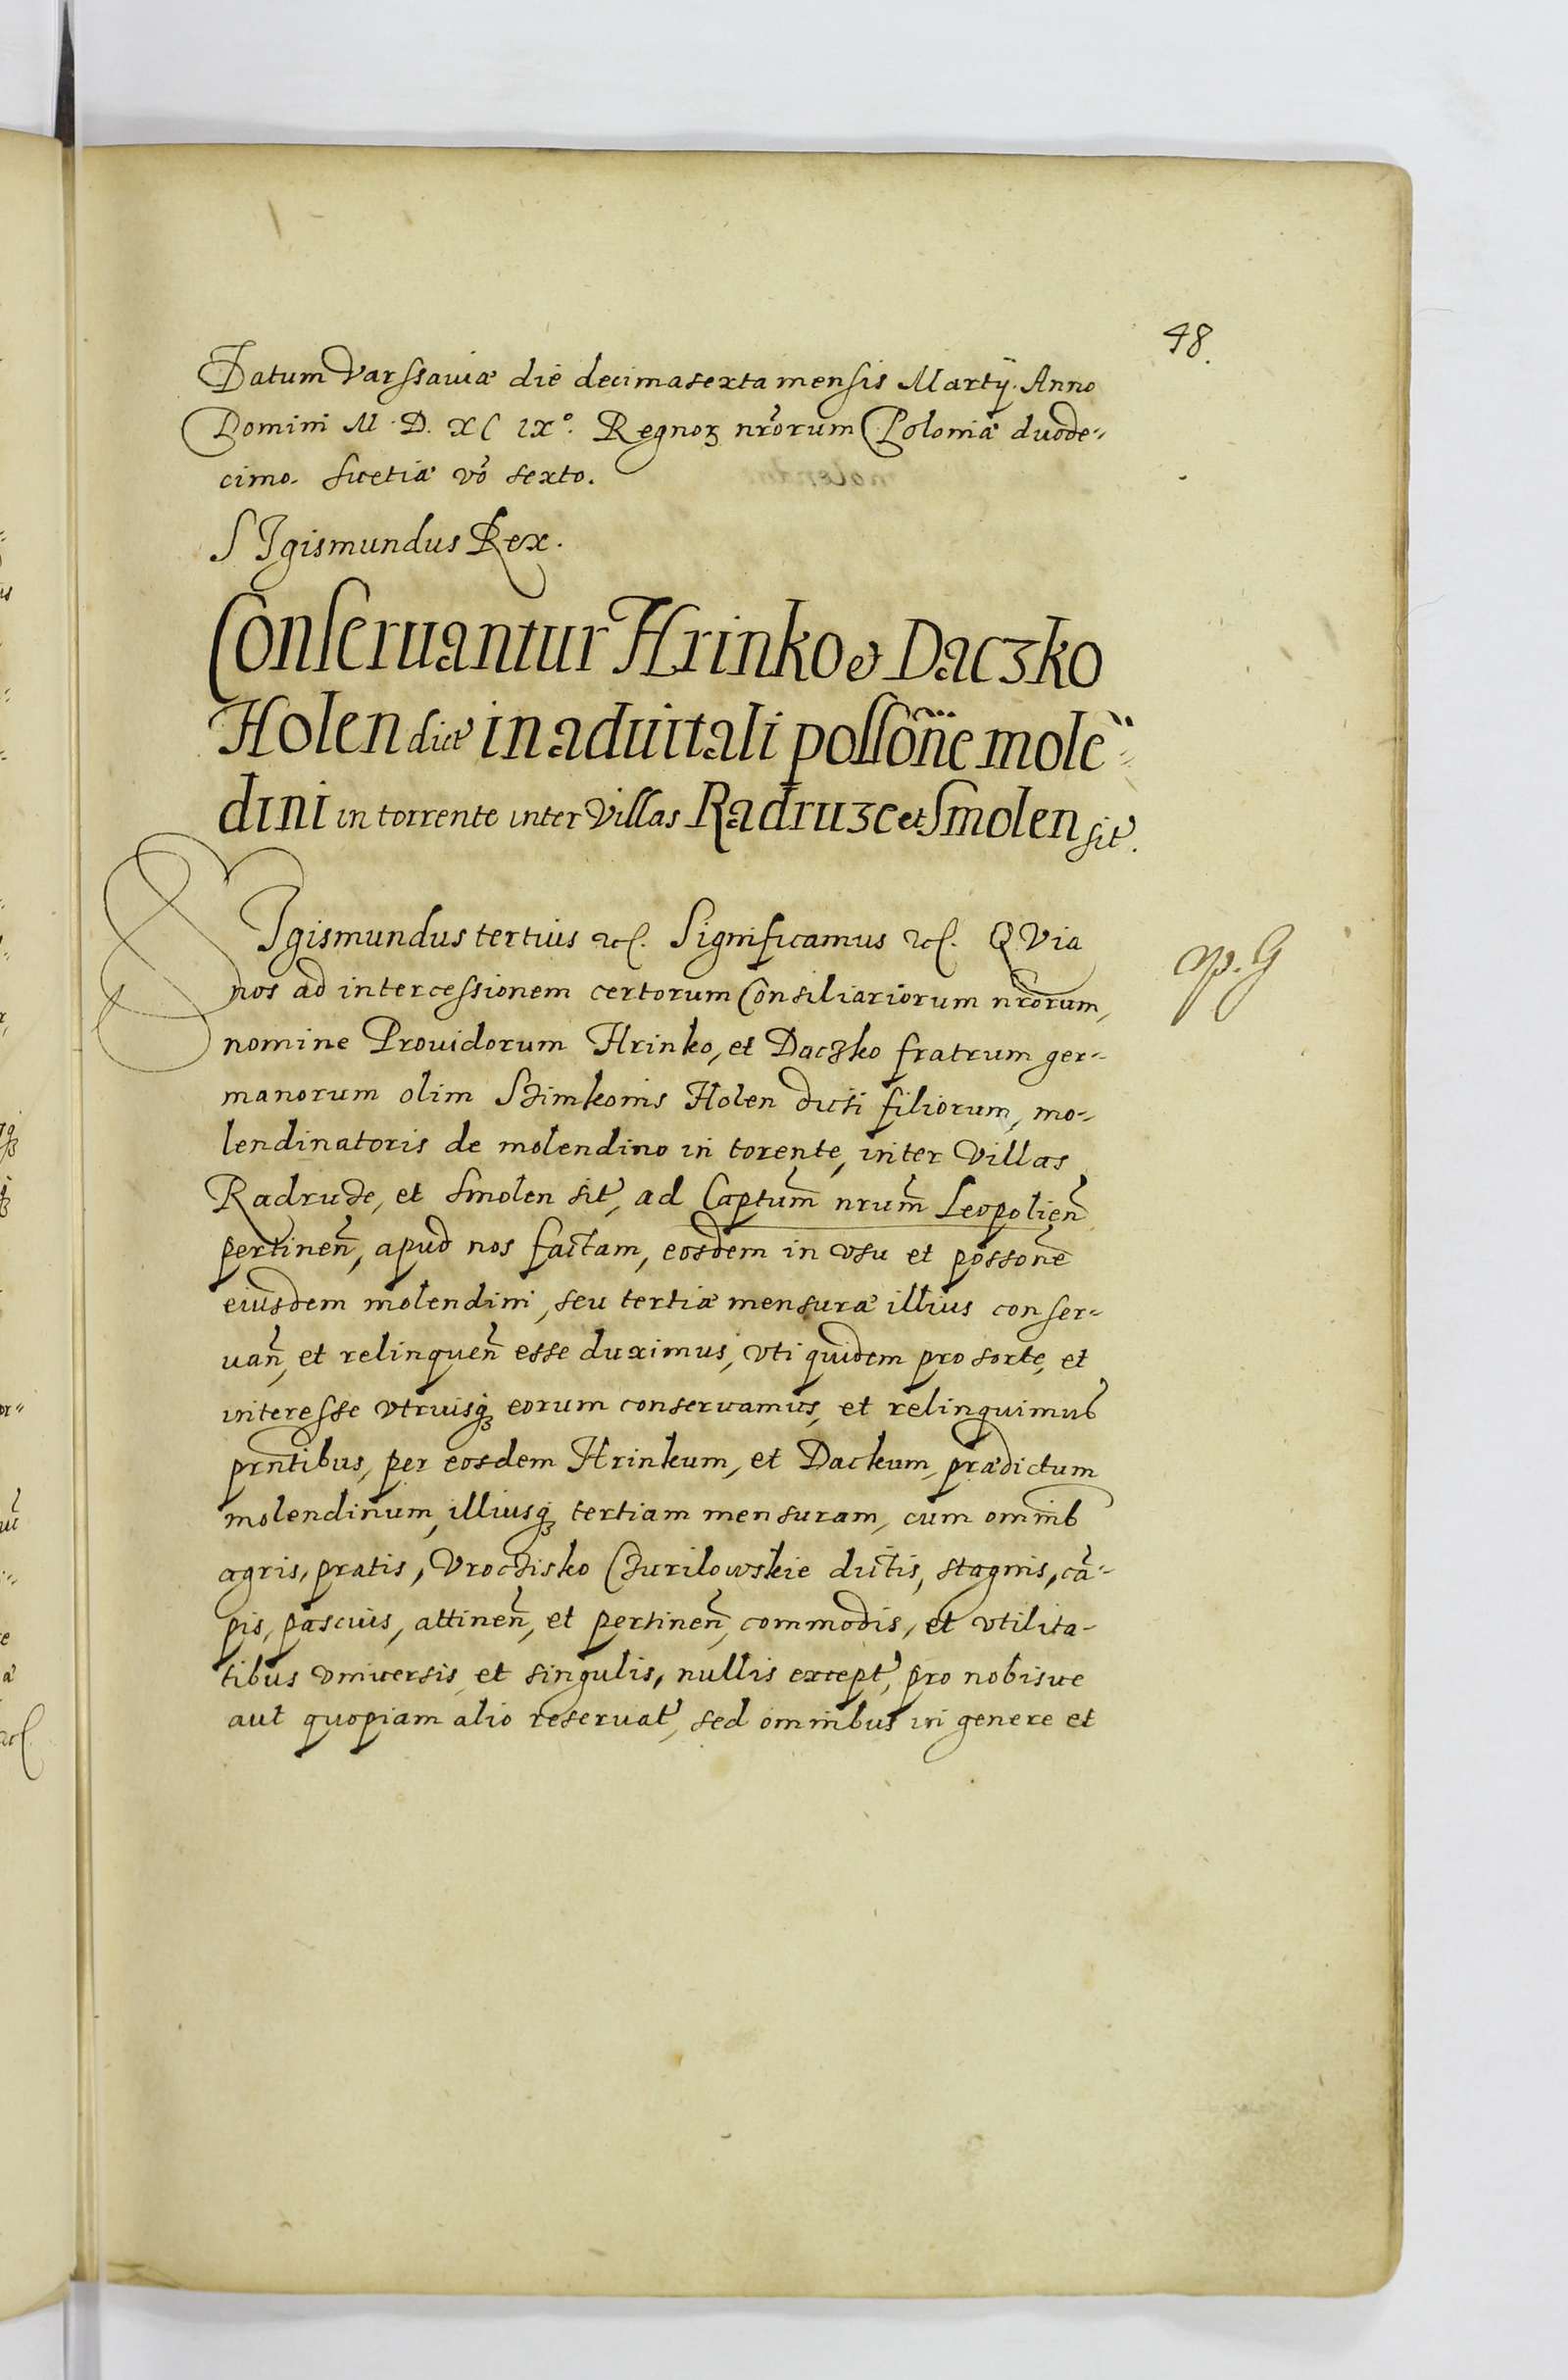 48.
Datum Varssaviæ die decimasexta mensis Martij. Anno
Domini M. D. XC IX°. Regnoꝝ nr̃orum Poloniæ duode=
cimo. Suetiæ vo sexto.
SIgismundus Rex.
Conseruantur Hrinko et Daczko
Holen dict in aduitali possõne mole=
dini in torrente inter Villas Radruze et Smolen sit.
SIgismundus tertius etc. Significamus etc. QVia
nos ad intercessionem certorum Consiliariorum nr̃orum,
nomine Prouidorum Hrinko, et Daczko fratrum ger=
manorum olim Szimkonis Holen dicti filiorum, mo=
lendinatoris de molendino in torente, inter Villas
Radruze, et Smolen sit, ad Captum̃ nrum̃ Leopolien̄
pertinen̄, apud nos factam, eosdem in vsu et possone
eiusdem molendini, seu tertiæ mensuræ illius conser=
uan̄, et relinquen̄ esse duximus, vti quidem pro sorte, et
interesse vtriusqꝫ eorum conseruamus, et relinquimus
prñtibus, per eosdem Hrinkum, et Dackum, prædictum
molendinum, illiusqꝫ tertiam mensuram, cum omnib
agris, pratis, Vroczisko Czurilowskie dictis, stagnis, cã=
pis, pascuis, attinen̄, et pertinen̄, commodis, et vtilita-
tibus vniuersis et singulis, nullis except, pro nobisue
aut quopiam alio reseruat, sed omnibus in genere et